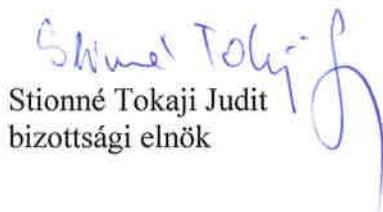 Stionné Tokaji
Stionné Tokaji Judit
bizottsági elnök